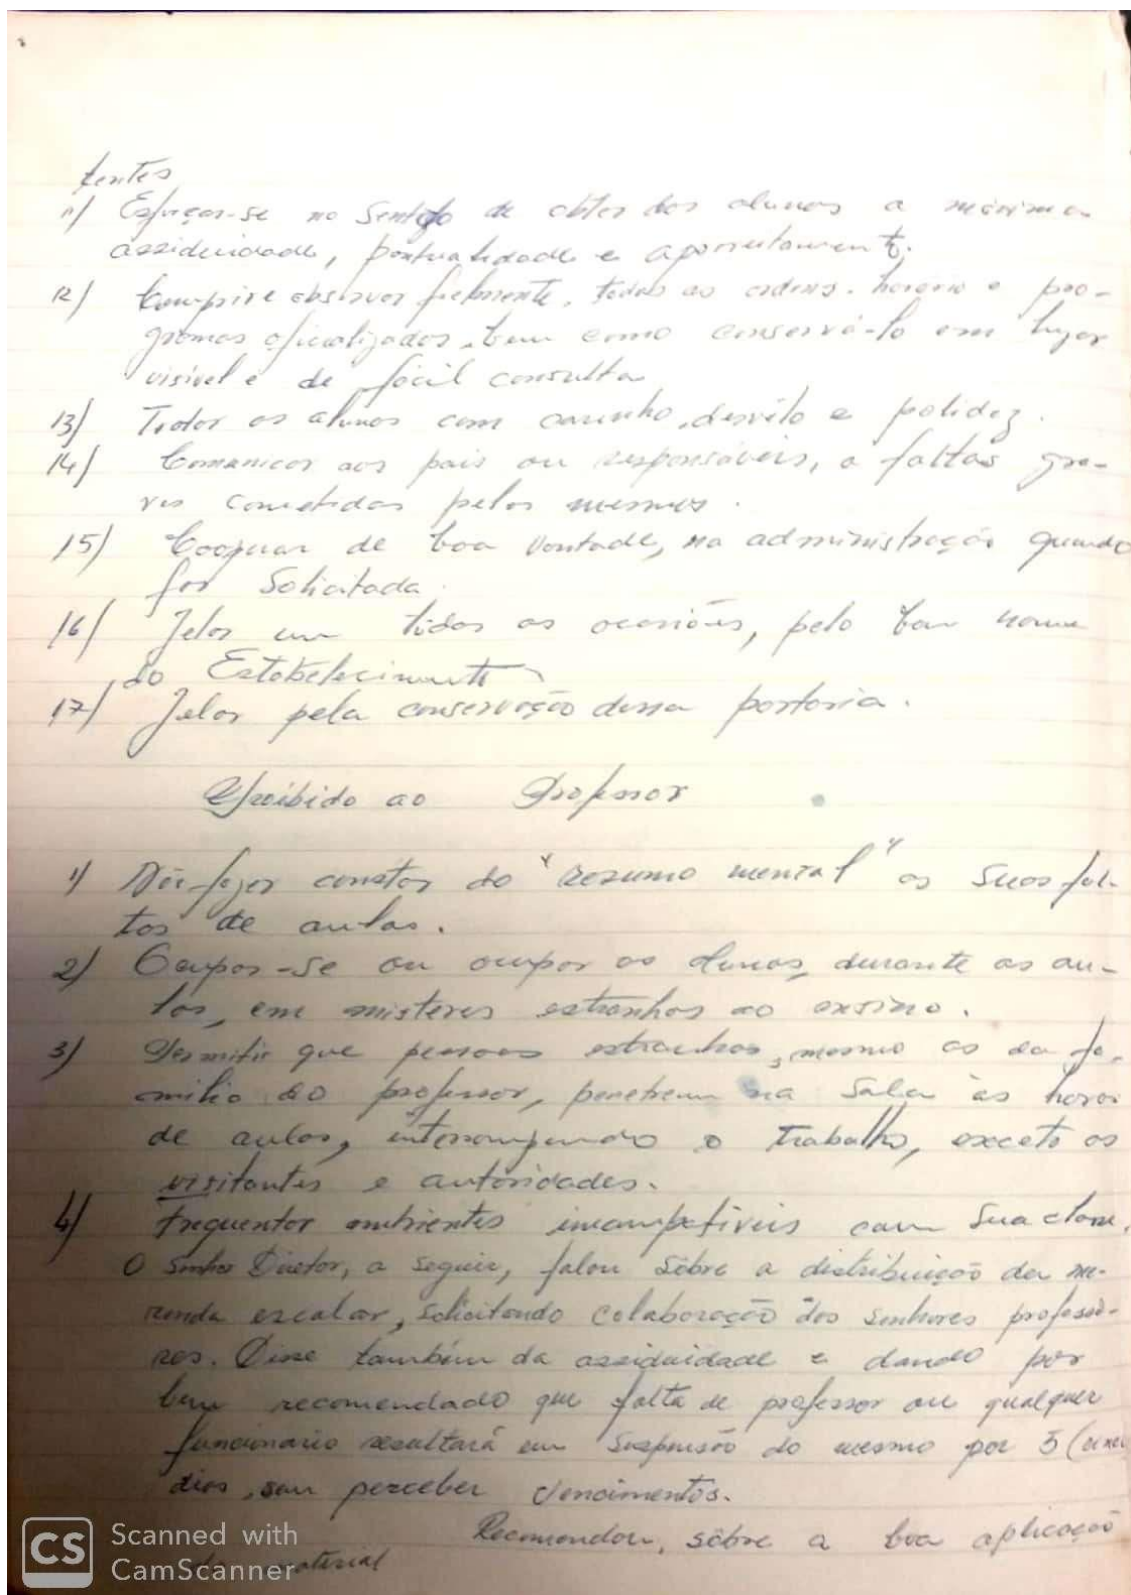 tentes
11) Esforçar-se no sentido de obter dos alunos a máxima
assiduidade, pontualidade e aproveitamento.
12) Cumprir e observar fielmente, todas as ordens, horário e pro-
gramas oficializados, bem como conservá-lo em lugar
visível e de fácil consulta
13) Tratar os alunos com carinho, desvêlo e polidez.
14) Comunicar aos pais ou responsáveis, a faltas gra-
ves cometidas pelos mesmos.
15) Cooperar de boa vontade, na administração quando
for solicitada.
16) Zelar em tôdas as ocasiões, pelo bom nome
do Estabelecimento
17) Zelar pela conservação dessa portaria.
Proibido ao Professor
1) Não fazer constar do "resumo mensal" as suas fal-
tas de aulas.
2) Ocupar-se ou ocupar os alunos, durante as au-
las, em misteres estranhos ao ensino.
3) Permitir que pessoas estranhas, mesmo as da fa-
mília do professor, penetrem na sala às horas
de aulas, interrompendo o trabalho, exceto os
visitantes e autoridades.
4) frequentar ambientes incompatíveis com sua classe.
O Senhor Diretor, a seguir, falou sôbre a distribuição da me-
renda escolar, solicitando colaboração dos senhores professô-
res. Disse também da assiduidade e dando por
bem recomendado que falta de professor ou qualquer
funcionário resultará em suspensão do mesmo por 5 (cinco
dias, sem perceber vencimentos.
Recomendou, sôbre a boa aplicação
do material
CS Scanned with
CamScanner